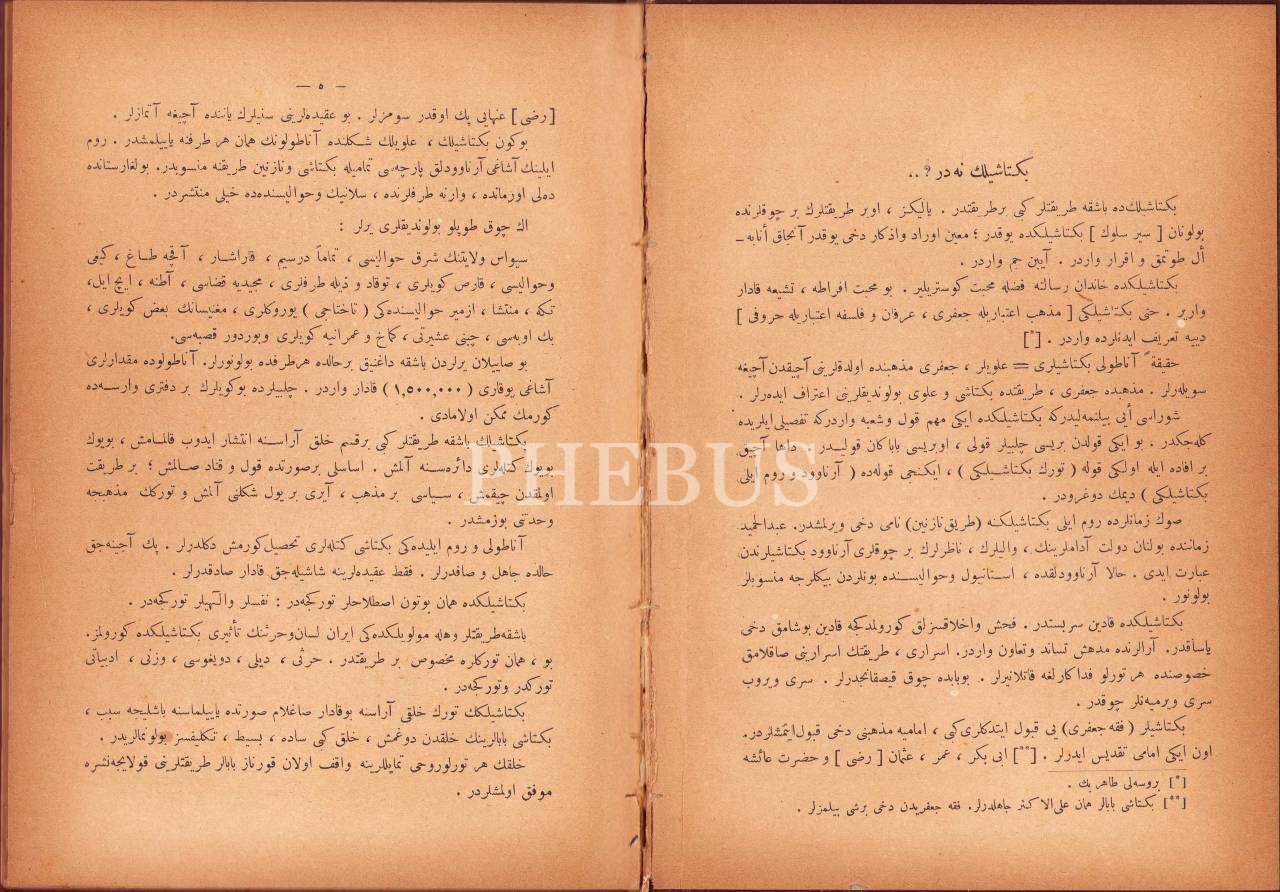 بكتاشیلك نه در ? ..
بكتاشیلك‌ده باشقه طریقتلر كبی برطریقتدر . یالیكز ، اوبر طریقتلرك بر چوقلرنده
بولونان [ سیر سلوك ] بكتاشیلكده یوقدر ؛ معین اوراد واذكار دخی یوقدر آنجاق أنابه ـ
أل طوتمق و اقرار واردر . آیین جم واردر .
بكتاشیلكده خاندان رسالته فضله محبت كوستریلیر . بو محبت افراطه ، تشیعه قادار
واریر . حتی بكتاشیلكی [ مذهب اعتباریله جعفری ، عرفان و فلسفه اعتباریله حروفی ]
دییه تعریف ایدنلرده واردر . [*]
حقیقةً آناطولی بكتاشیلری = علویلر ، جعفری مذهبنده اولدقلرینی آچیقدن آچیغه
سویله‌رلر . مذهبده جعفری ، طریقتده بكتاشی و علوی بولوندیقلرینی اعتراف ایده‌رلر .
شوراسی أیی بیلنمه‌لیدركه بكتاشیلكده ایكی مهم قول وشعبه واردركه تفصیلی ایلریده
كله‌جكدر . بو ایكی قولدن بریسی چلبیلر قولی ، اوبریسی باباكان قولیدر . داها آچیق
بر افاده ایله اولكی قوله ( تورك بكتاشیلكی ) ، ایكنجی قوله‌ده ( آرناوود و روم ایلی
بكتاشیلكی ) دیمك دوغرودر .
صوك زمانلرده روم ایلی بكتاشیلكنه (طریق نازنین) نامی دخی ویرلمشدر. عبدالحمید
زماننده بولنان دولت آداملرینك ، والیلرك ، ناظرلرك بر چوقلری آرناوود بكتاشیلرندن
عبارت ایدی . حالا آرناوودلقده ، استانبول وحوالیسنده بونلردن بیكلرجه منسوبلر
بولونور .
بكتاشیلكده قادین سربستدر . فحش واخلاقسزلق كورولمدكجه قادین بوشامق دخی
یاساقدر. آرالرنده مدهش تساند وتعاون واردر. اسراری ، طریقتك اسرارینی صاقلامق
خصوصنده هر تورلو فداكارلغه قاتلانیرلر . بوبابده چوق قیصقانجدرلر . سری ویروب
سری ویرمیه‌نلر چوقدر .
بكتاشیلر ( فقه جعفری ) یی قبول ایتدكلری كبی ، امامیه مذهبنی دخی قبول ایتمشلردر.
اون ایكی امامی تقدیس ایدرلر . [**] ابی بكر ، عمر ، عثمان [ رضی ] و حضرت عائشه
[*] بروسه‌لی طاهر بك .
[**] بكتاشی بابالر همان علی‌الاكثر جاهلدرلر. فقه جعفریدن دخی برشی بیلمزلر .
— ٥ —
[ رضی ] عنهایی پك اوقدر سومزلر . بو عقیده‌لرینی سنیلرك یاننده آچیغه آتمازلر .
بوكون بكتاشیلك ، علویلك شكلنده آناطولونك همان هر طرفنه یاییلمشدر . روم
ایلینك آشاغی آرناوودلق پارچه‌سی تمامیله بكتاشی ونازنین طریقنه منسوبدر. بولغارستانده
ده‌لی اورمانده ، وارنه طرفلرنده ، سلانیك وحوالیسنده‌ده خیلی منتشردر .
اك چوق طوپلو بولوندیقلری یرلر :
سیواس ولایتنك شرق حوالیسی ، تماماً درسیم ، قاراشار ، آقچه طاغ ، كیفی
وحوالیسی ، قارص كویلری ، توقاد و ذیله طرفلری ، مجیدیه قضاسی ، آطنه ، ایچ ایل،
تكه ، منتشا ، ازمیر حوالیسنده‌كی ( تاختاجی ) یوروكلری ، مغنیسانك بعض كویلری ،
بك اوبه‌سی ، چپنی عشیرتی ، كماخ و عمرانیه كویلری وبوردور قصبه‌سی.
بو صاییلان یرلردن باشقه داغنیق برحالده هرطرفده بولونورلر. آناطولوده مقدارلری
آشاغی یوقاری ( ١,٥٠٠,٠٠٠ ) قادار واردر . چلبیلرده بوكویلرك بر دفتری وارسه‌ده
كورمك ممكن اولامادی .
بكتاشیلك باشقه طریقتلر كبی برقسم خلق آراسنه انتشار ایدوب قالمامش ، بویوك
بویوك كتله‌لری دائره‌سنه آلمش . اساسلی برصورتده قول و قناد صالمش ؛ بر طریقت
اولمقدن چیقمش ، سیاسی بر مذهب ، آیری بر یول شكلنی آلمش و توركك مذهبجه
وحدتنی بوزمشدر .
آناطولی و روم ایلیده‌كی بكتاشی كتله‌لری تحصیل كورمش دكلدرلر . پك آجینه‌جق
حالده جاهل و صافدرلر . فقط عقیده‌لرینه شاشیله‌جق قادار صادقدرلر .
بكتاشیلكده همان بوتون اصطلاحلر توركجه‌در : نفسلر والٓهیلر توركجه‌در .
باشقه طریقتلر وهله مولویلكده‌كی ایران لسان‌وحرثنك تأثیری بكتاشیلكده كورولمز.
بو ، همان توركلره مخصوص بر طریقتدر . حرثی ، دیلی ، دویغوسی ، وزنی ، ادبیاتی
توركدر وتوركجه‌در .
بكتاشیلكك تورك خلقی آراسنه بوقادار صاغلام صورتده یاییلماسنه باشلیجه سبب ،
بكتاشی بابالرینك خلقدن دوغمش ، خلق كبی ساده ، بسیط ، تكلیفسز بولونمالریدر .
خلقك هر تورلوروحی تمایللرینه واقف اولان قورناز بابالر طریقتلرینی قولایجه‌نشره
موفق اولمشلردر .
PHEBUS